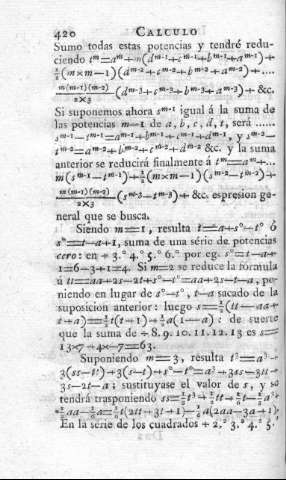 420 CALCULO
Sumo todas estas potencias y tendré redu-
ciendo tᵐ=aᵐ+m(dᵐ⁻¹+cᵐ⁻¹+bᵐ⁻¹+aᵐ⁻¹)+
½(m×m−1)(dᵐ⁻²+cᵐ⁻²+bᵐ⁻²+aᵐ⁻²)+....
m(m-1)(m-2)/2×3 (dᵐ⁻³+cᵐ⁻³+bᵐ⁻³+aᵐ⁻³)+&c.
Si suponemos ahora sᵐ⁻¹ igual á la suma de
las potencias m−1 de a, b, c, d, t, será ......
sᵐ⁻¹−tᵐ⁻¹=aᵐ⁻¹+bᵐ⁻¹+cᵐ⁻¹+dᵐ⁻¹, y sᵐ⁻²−
tᵐ⁻²=aᵐ⁻²+bᵐ⁻²+cᵐ⁻²+dᵐ⁻² &c. y la suma
anterior se reducirá finalmente á tᵐ=aᵐ+...
m(sᵐ⁻¹−tᵐ⁻¹)+½(m×m−1)(sᵐ⁻²−tᵐ⁻²)+
m(m-1)(m-2)/2×3 (sᵐ⁻³−tᵐ⁻³)+&c. espresion ge-
neral que se busca.
Siendo m=1, resulta t=a+s°−t° ó
s°=t−a+1, suma de una série de potencias
cero: en ÷ 3.° 4.° 5.° 6.° por eg. s°=t−a+
1=6−3+1=4. Si m=2 se reduce la fórmula
á tt=aa+2s−2t+s°−t°=aa+2s−t−a, po-
niendo en lugar de s°−t°, t−a sacado de la
suposicion anterior: luego s=½(tt−aa+
t+a)=½t(t+1)+½a(1−a): de suerte
que la suma de ÷ 8.9.10.11.12.13 es s=
13×7+4×−7=63.
Suponiendo m=3, resulta t³=a³+
3(ss−t²)+3(s−t)+s°−t°=a³+3ss−3tt+
3s−2t−a; sustituyase el valor de s, y se
tendrá trasponiendo ss=⅓t³+½tt+⅙t−⅓a³+
½aa−⅙a=⅙t(2tt+3t+1)−⅙a(2aa−3a+1).
En la série de los cuadrados ÷ 2.² 3.² 4.² 5.²